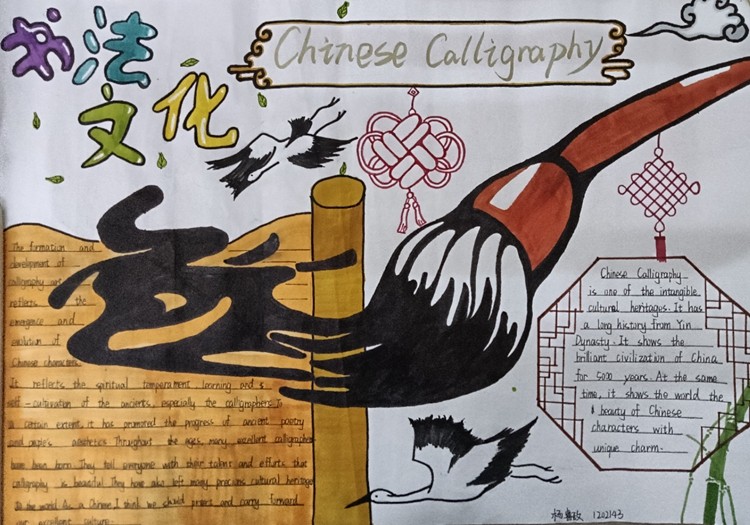 书法
文化
Chinese Calligraphy
The formation and
development of
calligraphy art
reflects the
emergence and
evolution of
Chinese characters.
It reflects the spiritual temperament learning and s
elf-cultivation of the ancients, especially the calligraphers. To
a certain extent, it has promoted the progress of ancient poetry
and people's aesthetics Throughout the ages, many excellent calligraphers
have been born. They tell everyone with their talent and efforts that
calligraphy is beautiful They have also left many precious cultural heritage
to the world. As a Chinese I think we should protect and carry forward
our excellent culture.
Chinese Calligraphy
is one of the intangible
cultural heritages. It has
a long history from Yin
Dynasty. It shows the
brilliant civilization of China
for 5000 years. At the same
time, it shows the world the
beauty of Chinese
characters with
unique charm.
杨 1202143